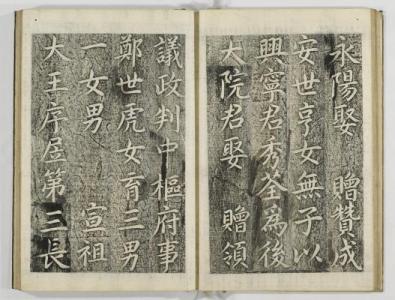 永陽娶　贈贊成
安世亨女無子以
興寧君秀荃為後
大院君娶　贈領
議政判中樞府事
鄭世虎女育三男
一女男　　宣祖
大王序居第三長